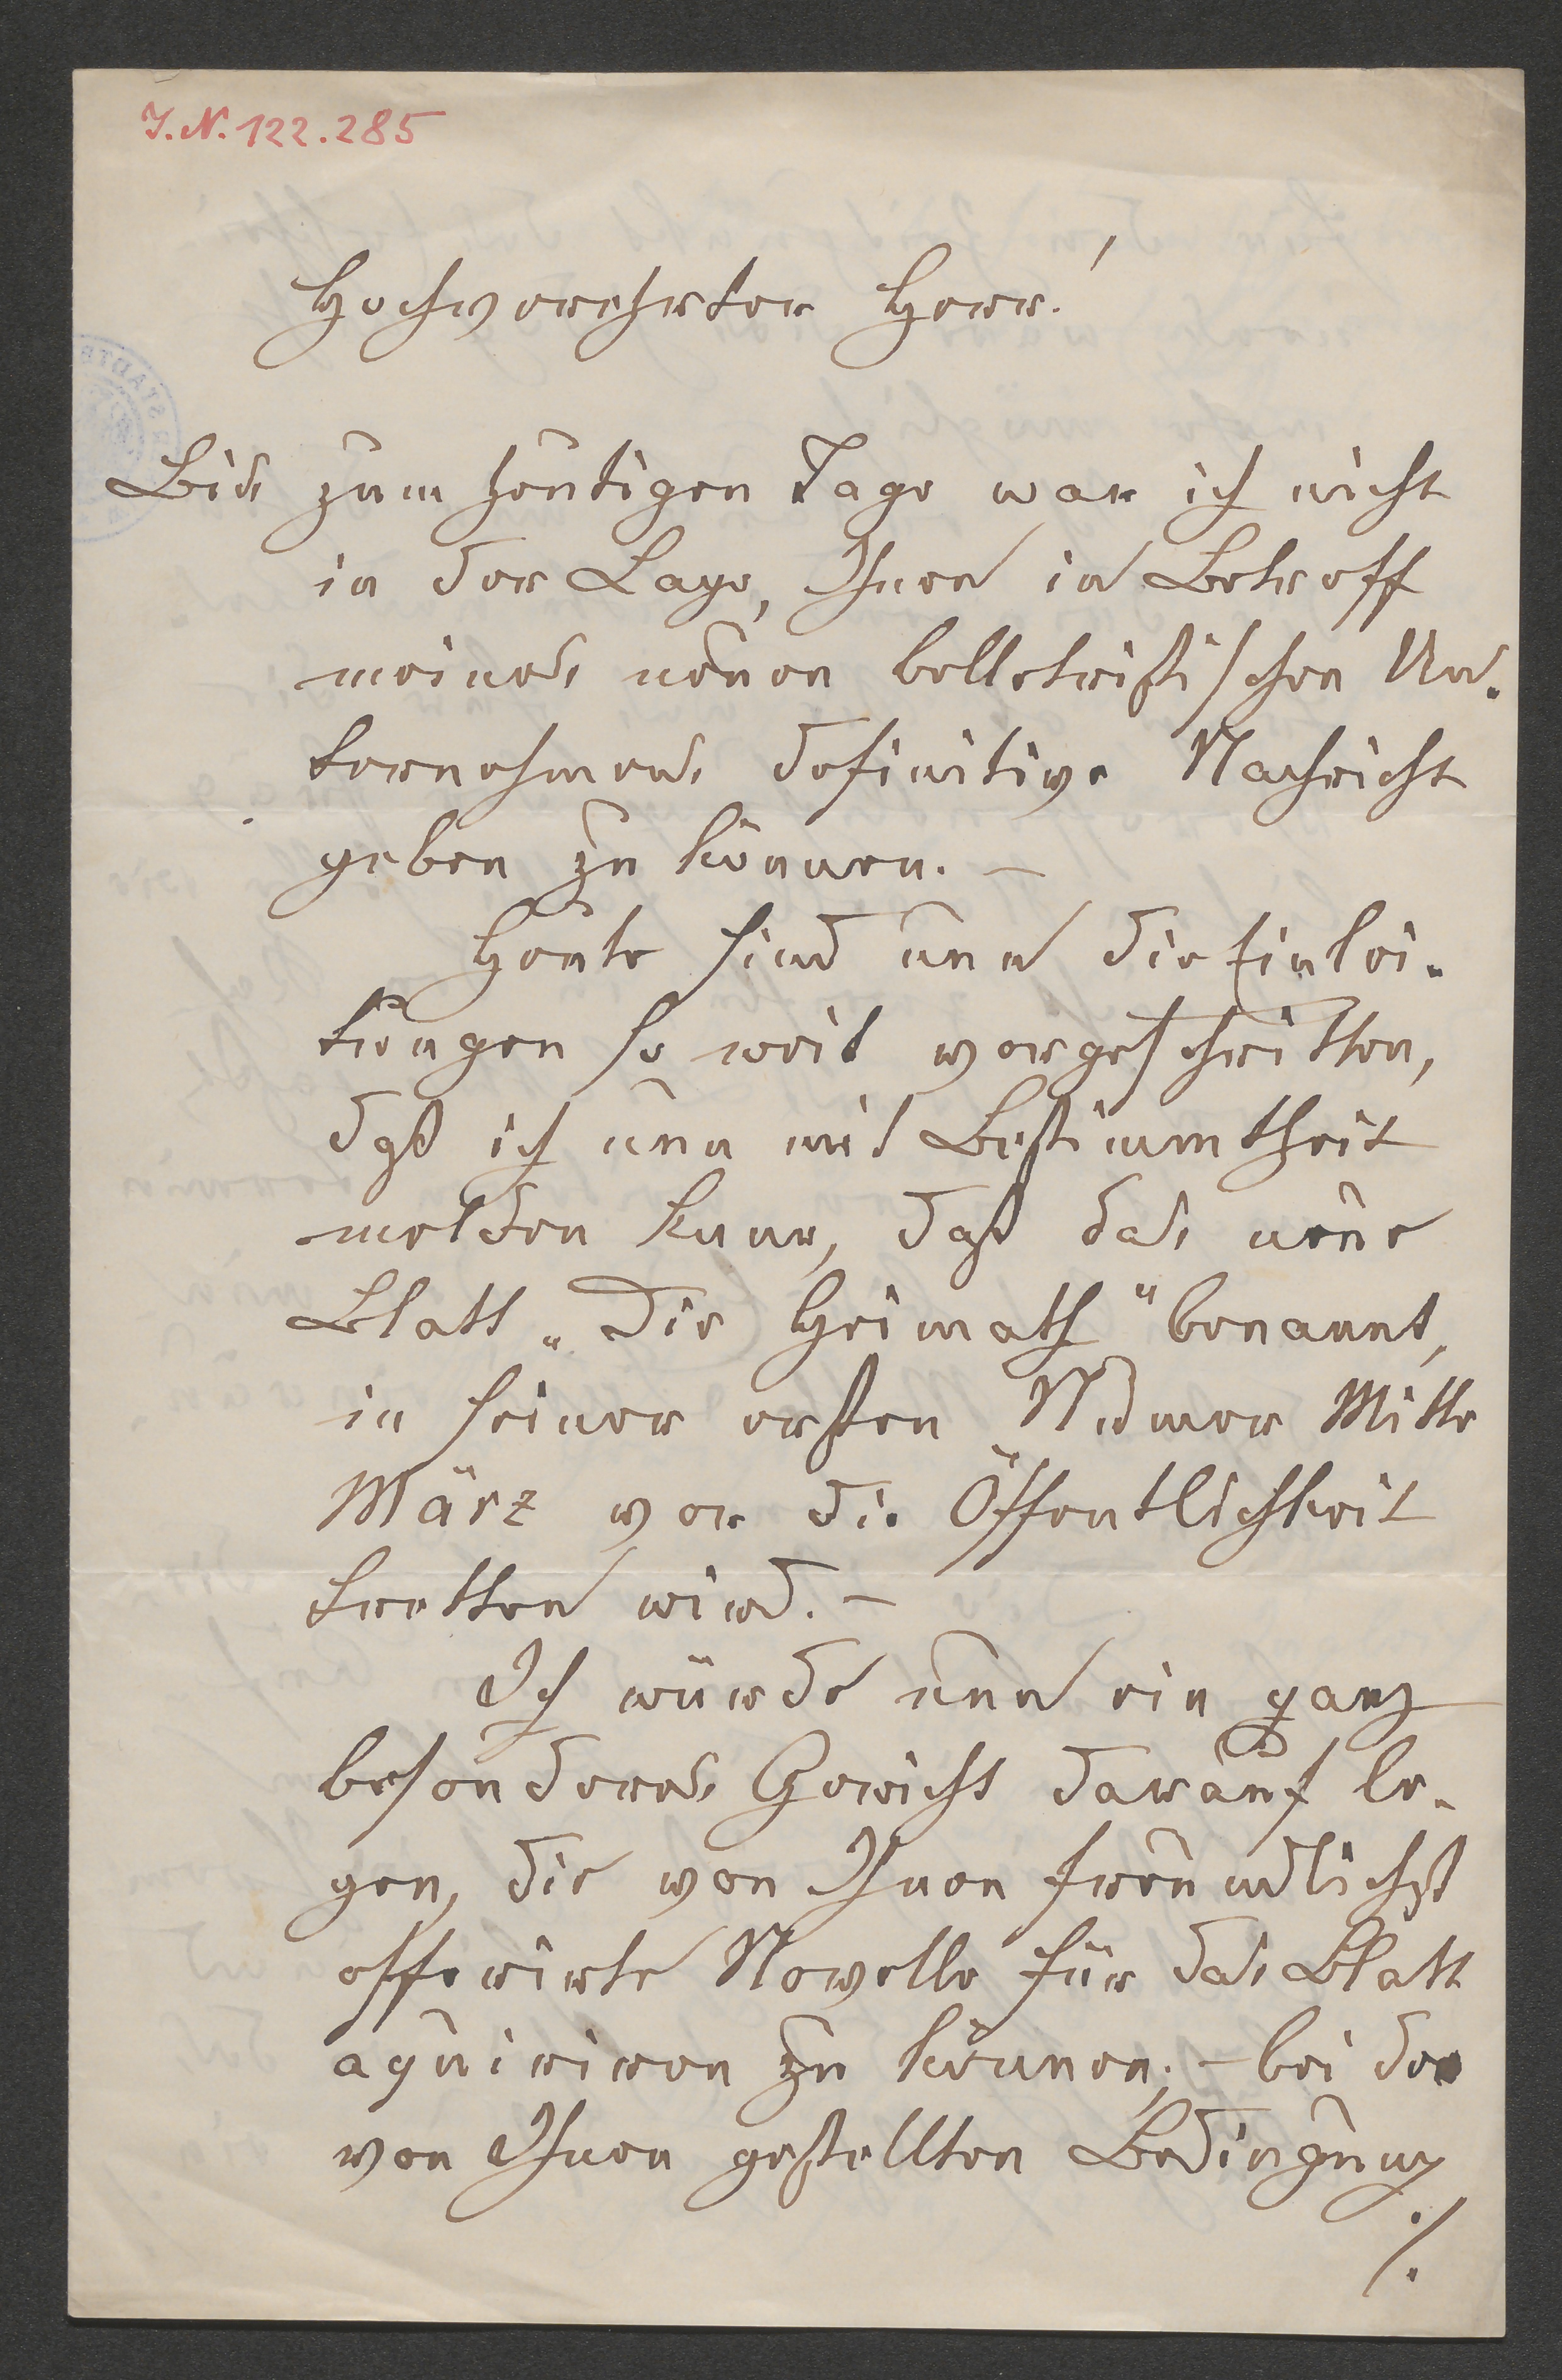 I.N. 122.285
Hochverehrter Herr!
Bis zum heutigen Tage war ich nicht
in der Lage, Ihnen in Betreff
meines neuen belletristischen Un-
ternehmens definitive Nachricht
geben zu können. –
Heute sind nun die Einlei-
tungen so weit vorgeschritten,
daß ich nun mit Bestimmtheit
melden kann, daß das neue
Blatt „Die Heimath“ benannt,
in seiner ersten Numer Mitte
März vor die Öffentlichkeit
tretten wird. –
Ich würde nun ein ganz
besonderes Gewicht darauf le-
gen, die von Ihnen freundlichst
offerirte Novelle für das Blatt
aquiriren zu können; – bei der
von Ihnen gestellten Bedingung
./.